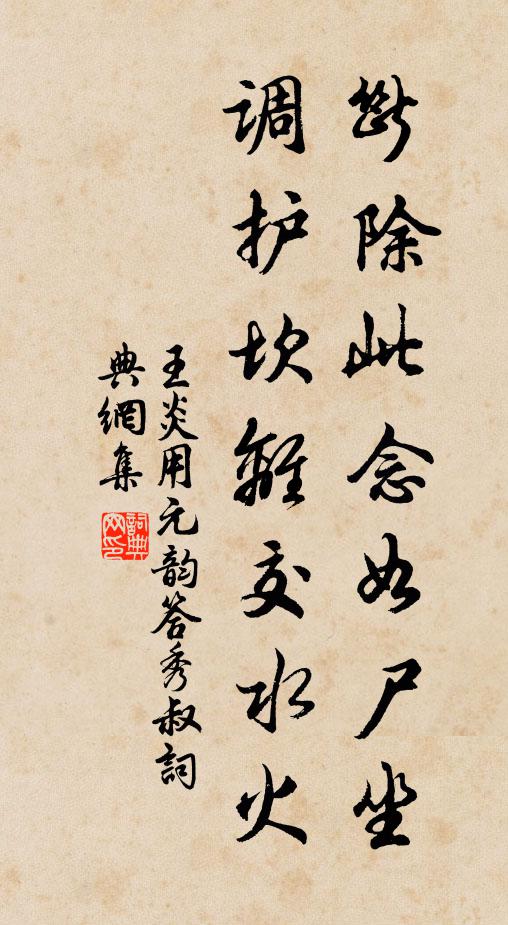 断除此念如尸坐
调护坎離交水火
王炎用元韵答秀叔詞
典網集
詞典网印